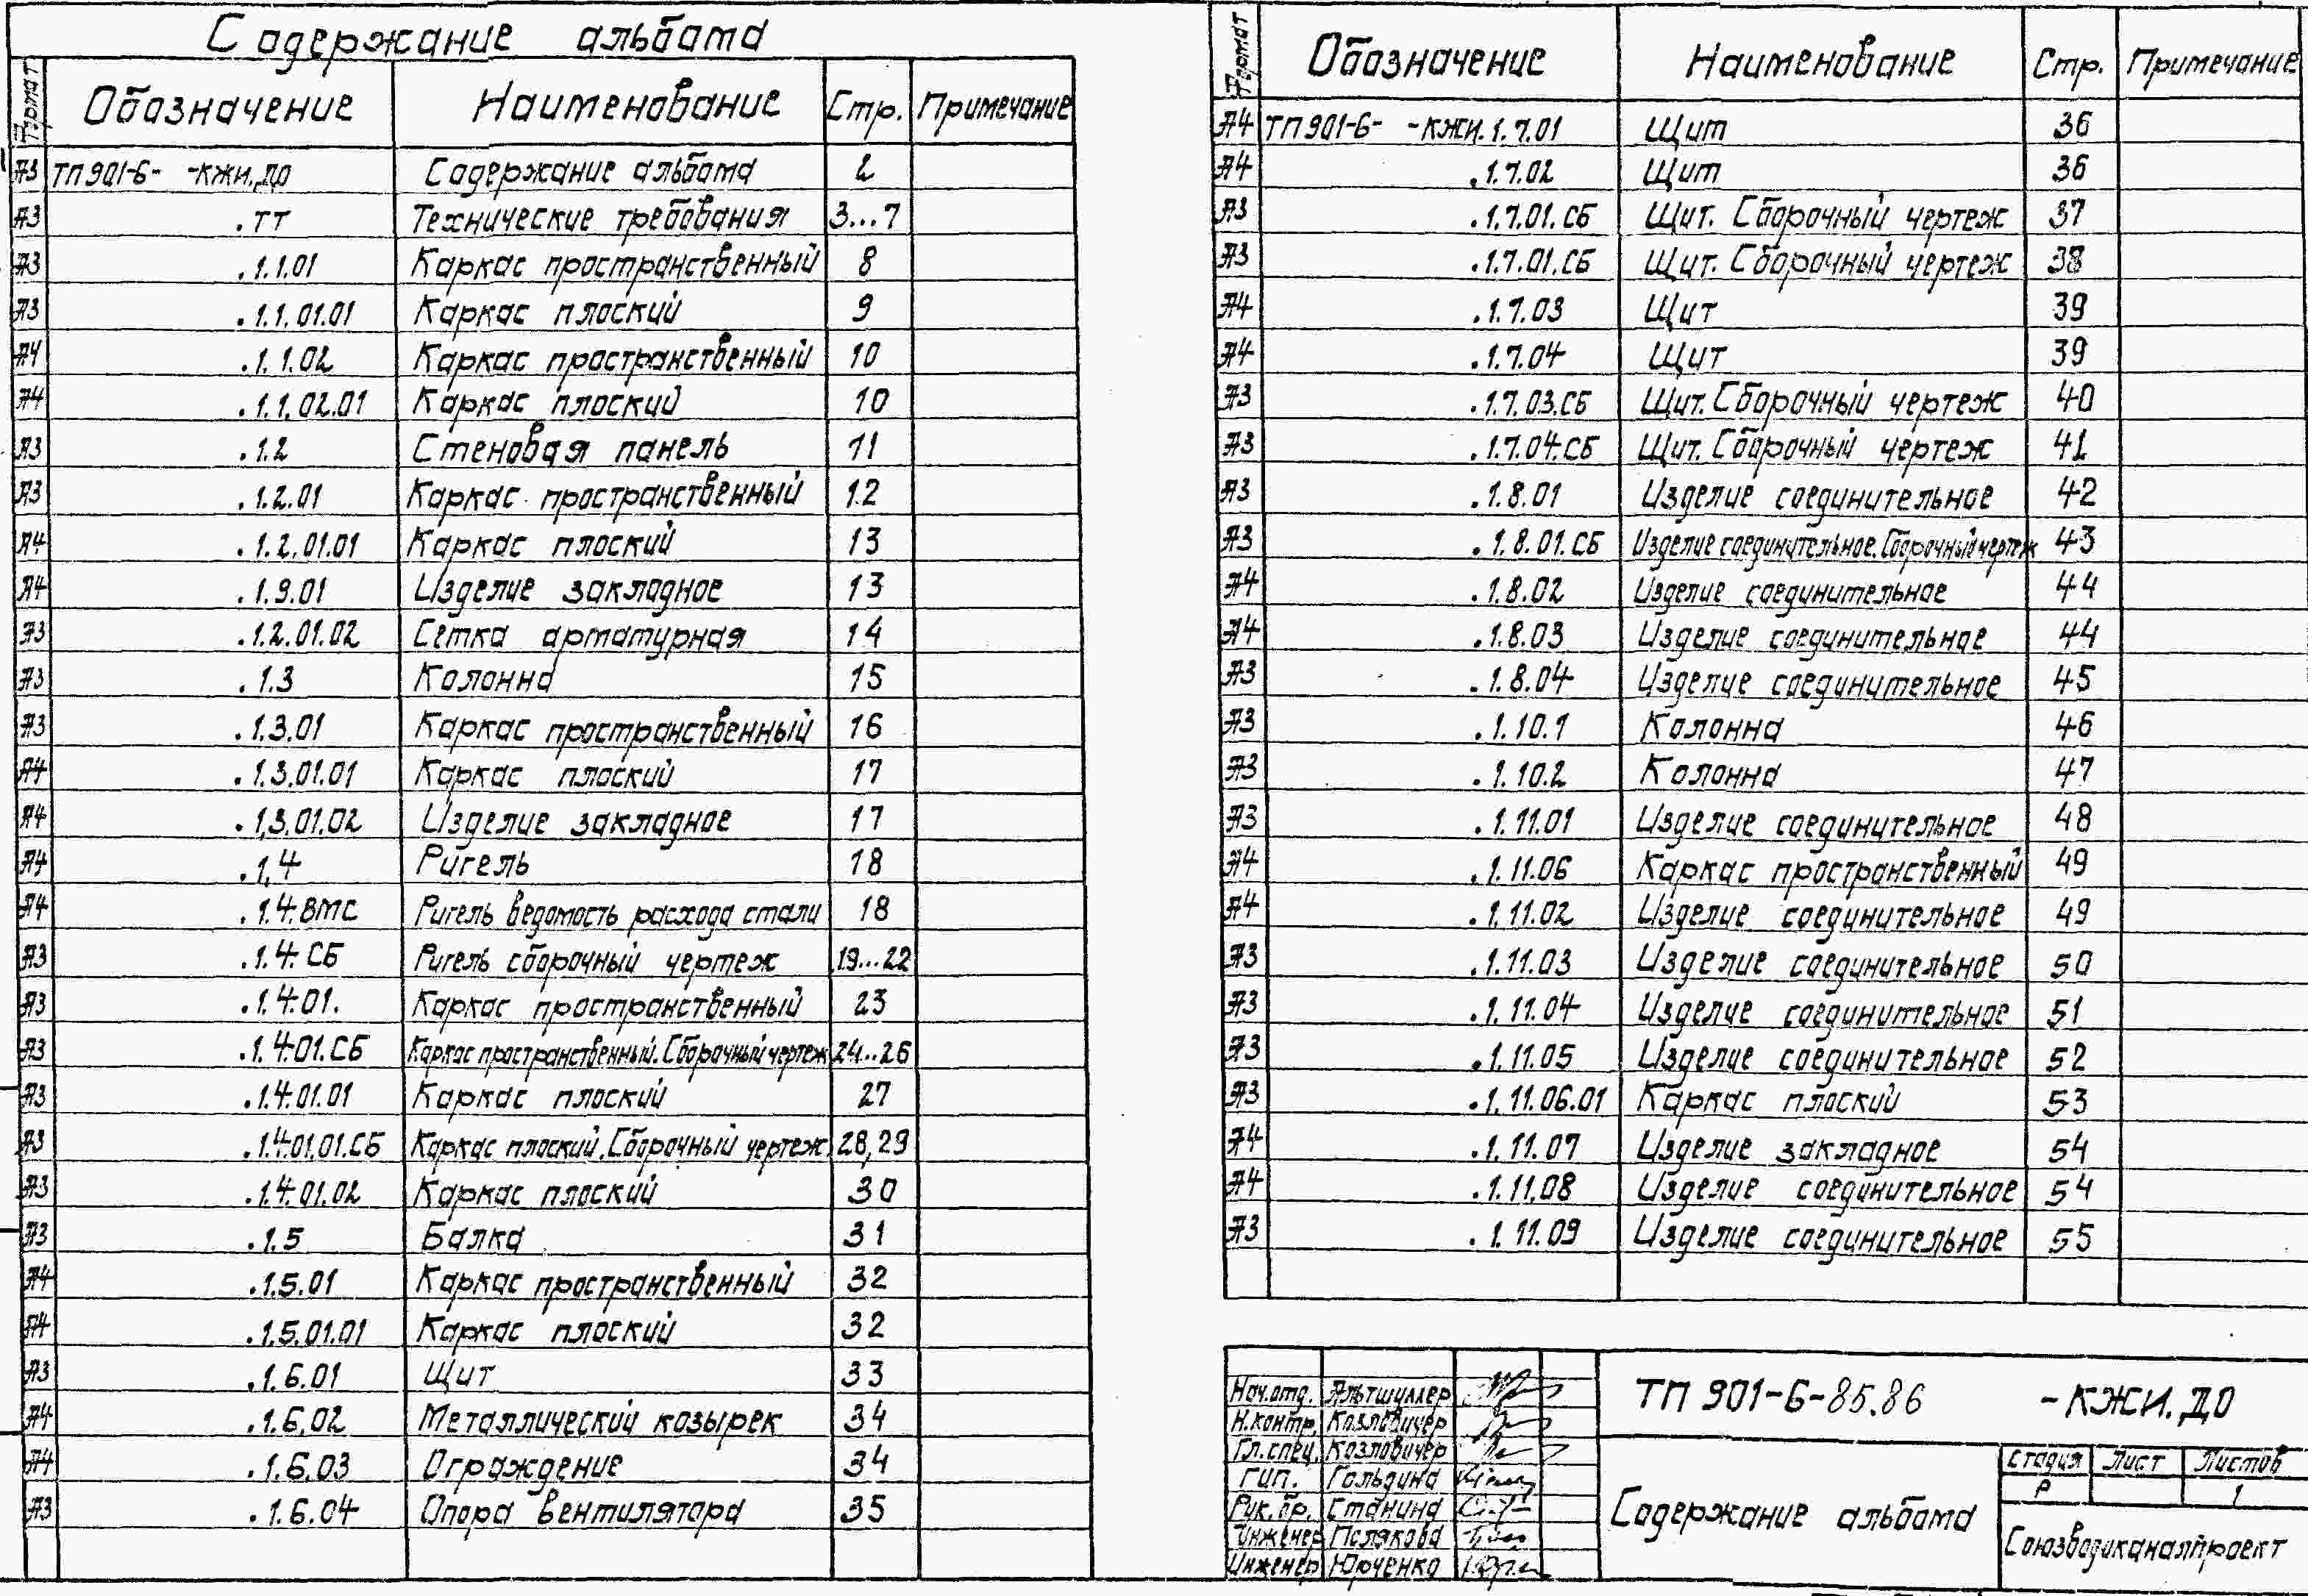 Содержание альбома
Формат Обозначение Наименование Стр. Примечание
А3 ТП 901-6- -КЖИ.ДО Содержание альбома 2
А3 .ТТ Технические требования 3...7
А3 .1.1.01 Каркас пространственный 8
А3 .1.1.01.01 Каркас плоский 9
А4 .1.1.02 Каркас пространственный 10
А4 .1.1.02.01 Каркас плоский 10
А3 .1.2 Стеновая панель 11
А3 .1.2.01 Каркас пространственный 12
А4 .1.2.01.01 Каркас плоский 13
А4 .1.9.01 Изделие закладное 13
А3 .1.2.01.02 Сетка арматурная 14
А3 .1.3 Колонна 15
А3 .1.3.01 Каркас пространственный 16
А4 .1.3.01.01 Каркас плоский 17
А4 .1.3.01.02 Изделие закладное 17
А4 .1.4 Ригель 18
А4 .1.4.ВМС Ригель ведомость расхода стали 18
А3 .1.4.СБ Ригель сборочный чертеж 19...22
А3 .1.4.01. Каркас пространственный 23
А3 .1.4.01.СБ Каркас пространственный. Сборочный чертеж 24...26
А3 .1.4.01.01 Каркас плоский 27
А3 .1.4.01.01.СБ Каркас плоский. Сборочный чертеж 28,29
А3 .1.4.01.02 Каркас плоский 30
А3 .1.5 Балка 31
А4 .1.5.01 Каркас пространственный 32
А4 .1.5.01.01 Каркас плоский 32
А3 .1.6.01 Щит 33
А4 .1.6.02 Металлический козырек 34
А4 .1.6.03 Ограждение 34
А3 .1.6.04 Опора вентилятора 35
Формат Обозначение Наименование Стр. Примечание
А4 ТП 901-6- -КЖИ.1.7.01 Щит 36
А4 .1.7.02 Щит 36
А3 .1.7.01.СБ Щит. Сборочный чертеж 37
А3 .1.7.01.СБ Щит. Сборочный чертеж 38
А4 .1.7.03 Щит 39
А4 .1.7.04 Щит 39
А3 .1.7.03.СБ Щит. Сборочный чертеж 40
А3 .1.7.04.СБ Щит. Сборочный чертеж 41
А3 .1.8.01 Изделие соединительное 42
А3 .1.8.01.СБ Изделие соединительное. Сборочный чертеж 43
А4 .1.8.02 Изделие соединительное 44
А4 .1.8.03 Изделие соединительное 44
А3 .1.8.04 Изделие соединительное 45
А3 .1.10.1 Колонна 46
А3 .1.10.2 Колонна 47
А3 .1.11.01 Изделие соединительное 48
А4 .1.11.06 Каркас пространственный 49
А4 .1.11.02 Изделие соединительное 49
А3 .1.11.03 Изделие соединительное 50
А3 .1.11.04 Изделие соединительное 51
А3 .1.11.05 Изделие соединительное 52
А3 .1.11.06.01 Каркас плоский 53
А4 .1.11.07 Изделие закладное 54
А4 .1.11.08 Изделие соединительное 54
А3 .1.11.09 Изделие соединительное 55
Нач.отд. Альтшуллер
Н.контр. Козловичер
Гл.спец. Козловичер
ГИП. Гольдина
Рук.бр. Станина
Инженер Полякова
Инженер Юрченко
ТП 901-6-85.86 -КЖИ.ДО
Содержание альбома
Стадия Лист Листов
Р 1
Союзводоканалпроект